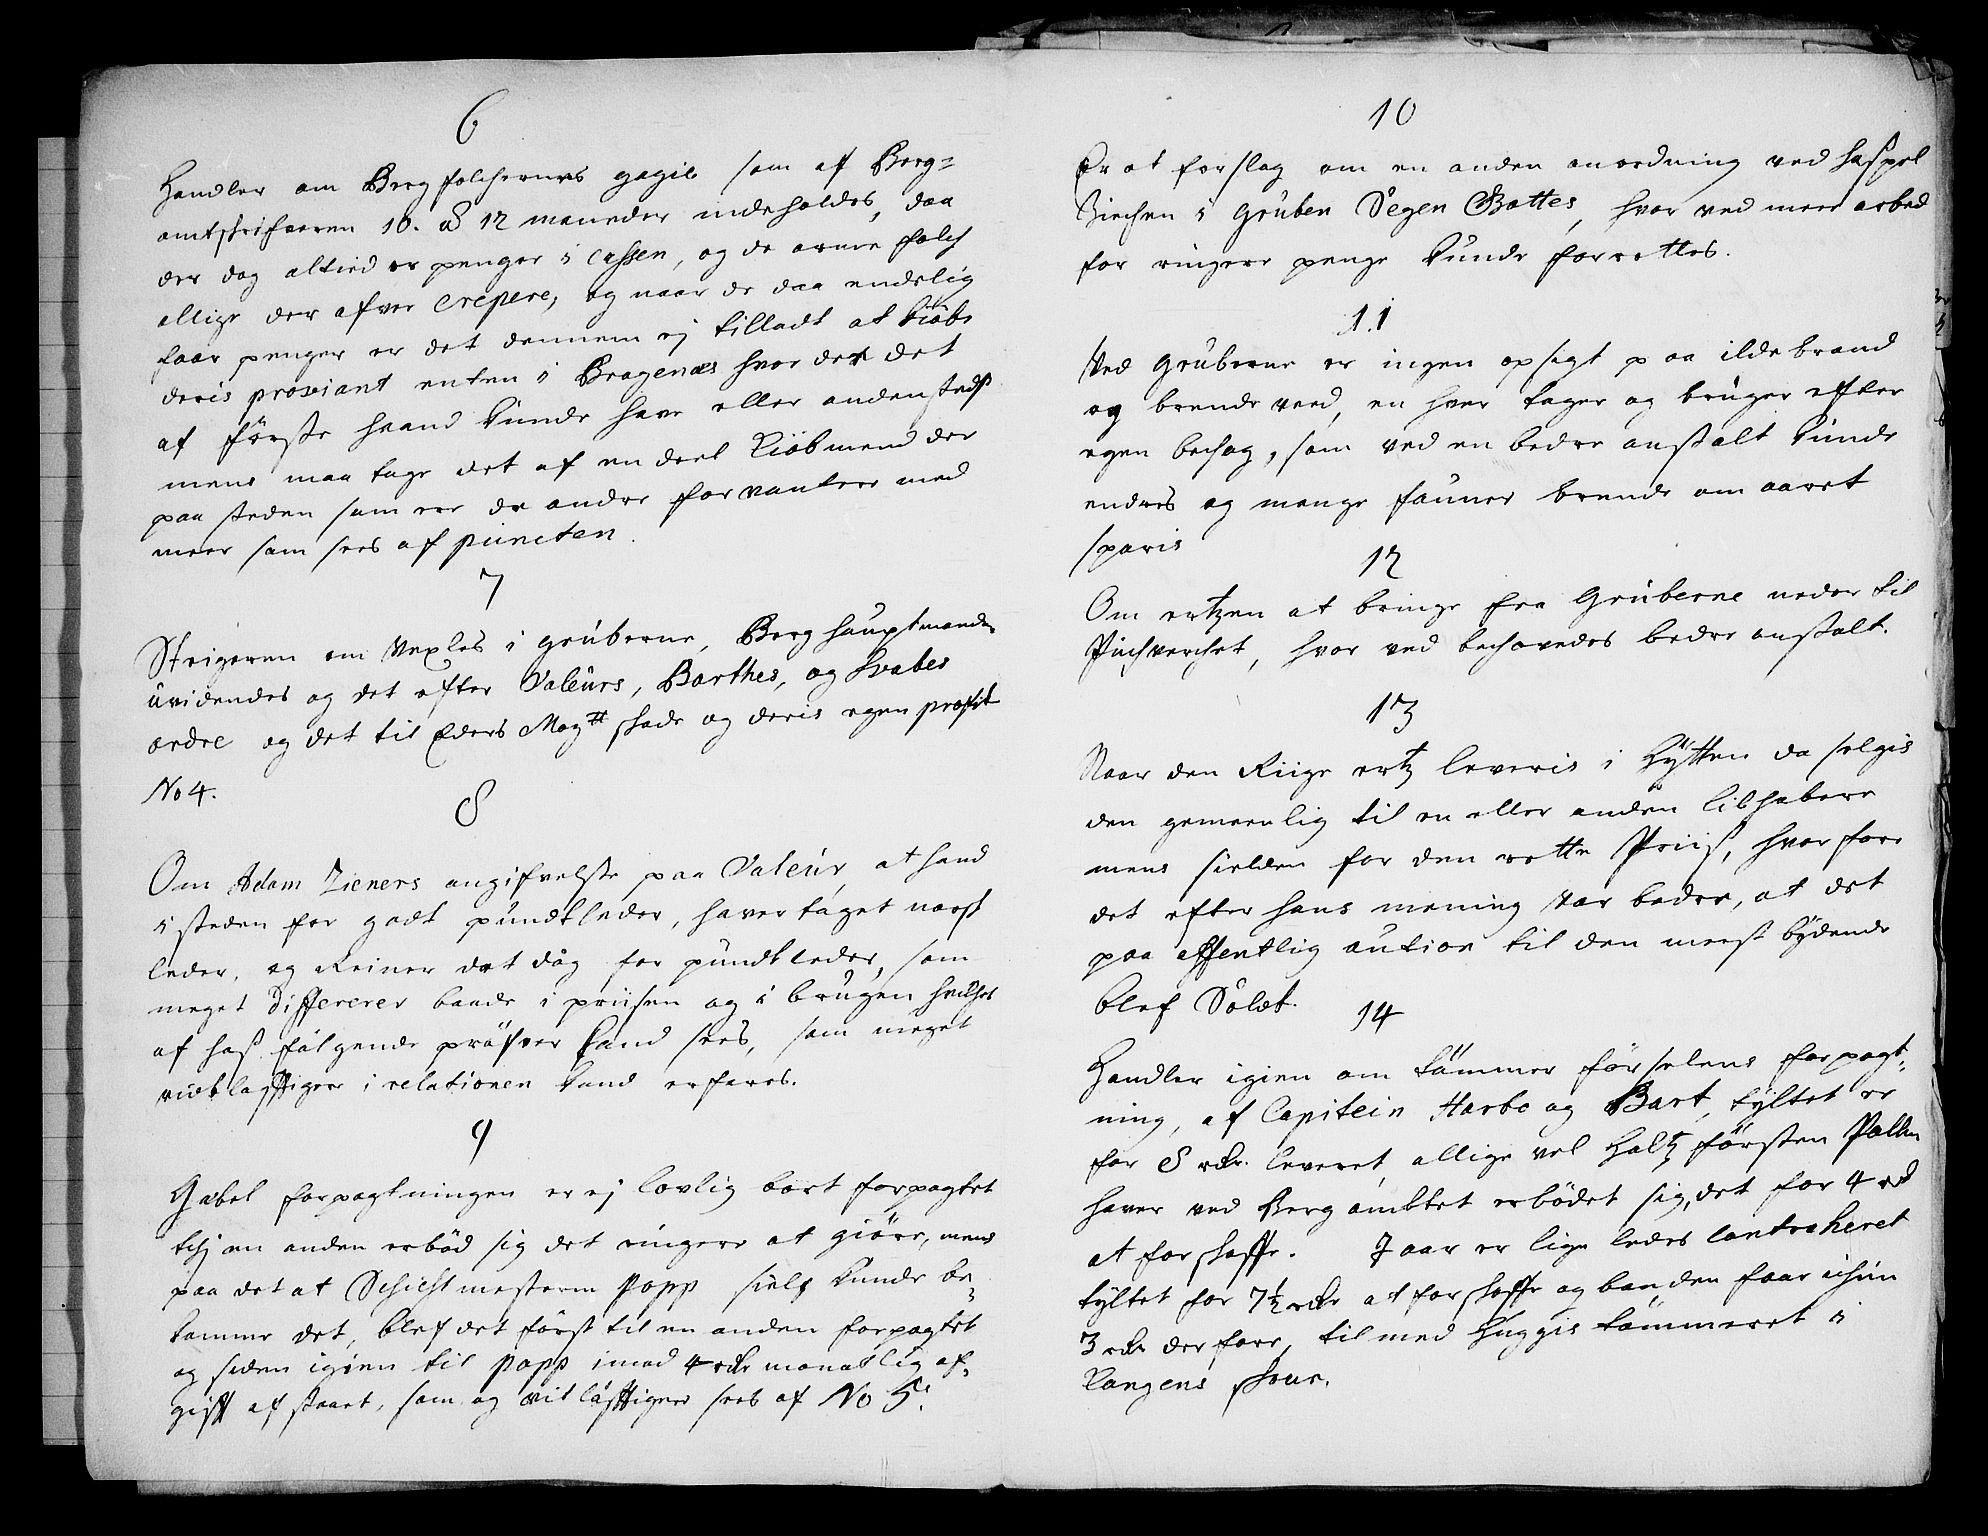 6
Handler om Bergfolchernes gagie som af Berg=
amtskrifveren 10. à 12 maaneder indeholdes, daa
der dog altied er penger i Cassen, og de arme folch
allige der afver Crepere, og naar de daa endelig
faar penger er det dennem ej tilladt at kiöbe
deris proviant enten i Bragenæs hvor de det
af förste haand kunde have eller andensteds
mens maa tage det af en deel Kiöbmend der
paa steden som er de andre forvanter med
meer som sees af puncten.
7
Steigeren om Vexles i gruberne, Berghauptmanden
uvidendes og det efter Valeurs, Barthes, og Svabes
ordre og det til Eders Maytt skade og deris egen profit
No 4.
8
Om Adam Zieners angifvelse paa Valeur, at hand
i steden for godt pundtleder, haver taget norsk
leder, og Reiner det dög for pundtleder, som
meget differerer baade i priisen og i brugen hvilchet
af hos fölgende pröfver kand sees, som meget
vidtlöfftigere i relationen kand erfares.
9
Gabel forpagtningen er ej lovlig bort forpagtet
thj en anden erböd sig det ringere at giöre, mens
paa det at Schichtmesteren Popp sielf kunde be=
komme det, blef det först til en anden forpagtet
og siden igien til Popp imod 4 rdr monatlig af=
gift af staaet, som og vitlöfftigere sees af No 5.
10
Er et forslag om en anden anordning ved haspel
Ziechen i Gruben Segen Gottes, hvor ved meer arbed
for ringere penge kunde forrettes.
11
Ved Gruberne er ingen opsigt paa ildebrand
og brende veed, en hver tager og brüger efter
egen behag, som ved en bedre anstalt kunde
endres og mange fauner brende om aaret
sparis
12
Om ertzen at bringe fra Gruberne neder til
Puchverchet, hvor ved behövedes bedre anstalt.
13
Naar den Riige ertz leveris i Hÿtten da selgis
den gemeenlig til en eller anden liebhabere
mens sielden for den rette Priiß, hvor fore
det efter hans mening var bedre, at det
paa offentlig aution til den meest bÿdende
blef Soldt.
14
Handler igien om tömmer förselens forpagt=
ning, af Capitein Harbo og Bart, tÿltet er
for 8 rdr. leveret, allige vel Holtz försten Pallen
haver ved Bergambtet erbödet sig, det for 4 rd
at forskaffe. I aar er lige ledes Contraheret
tÿltet for 7½ rdr at forskaffe og bonden faar ichun
3 rdr derfore, til med huggis tömmeret i
Kongens skoue.